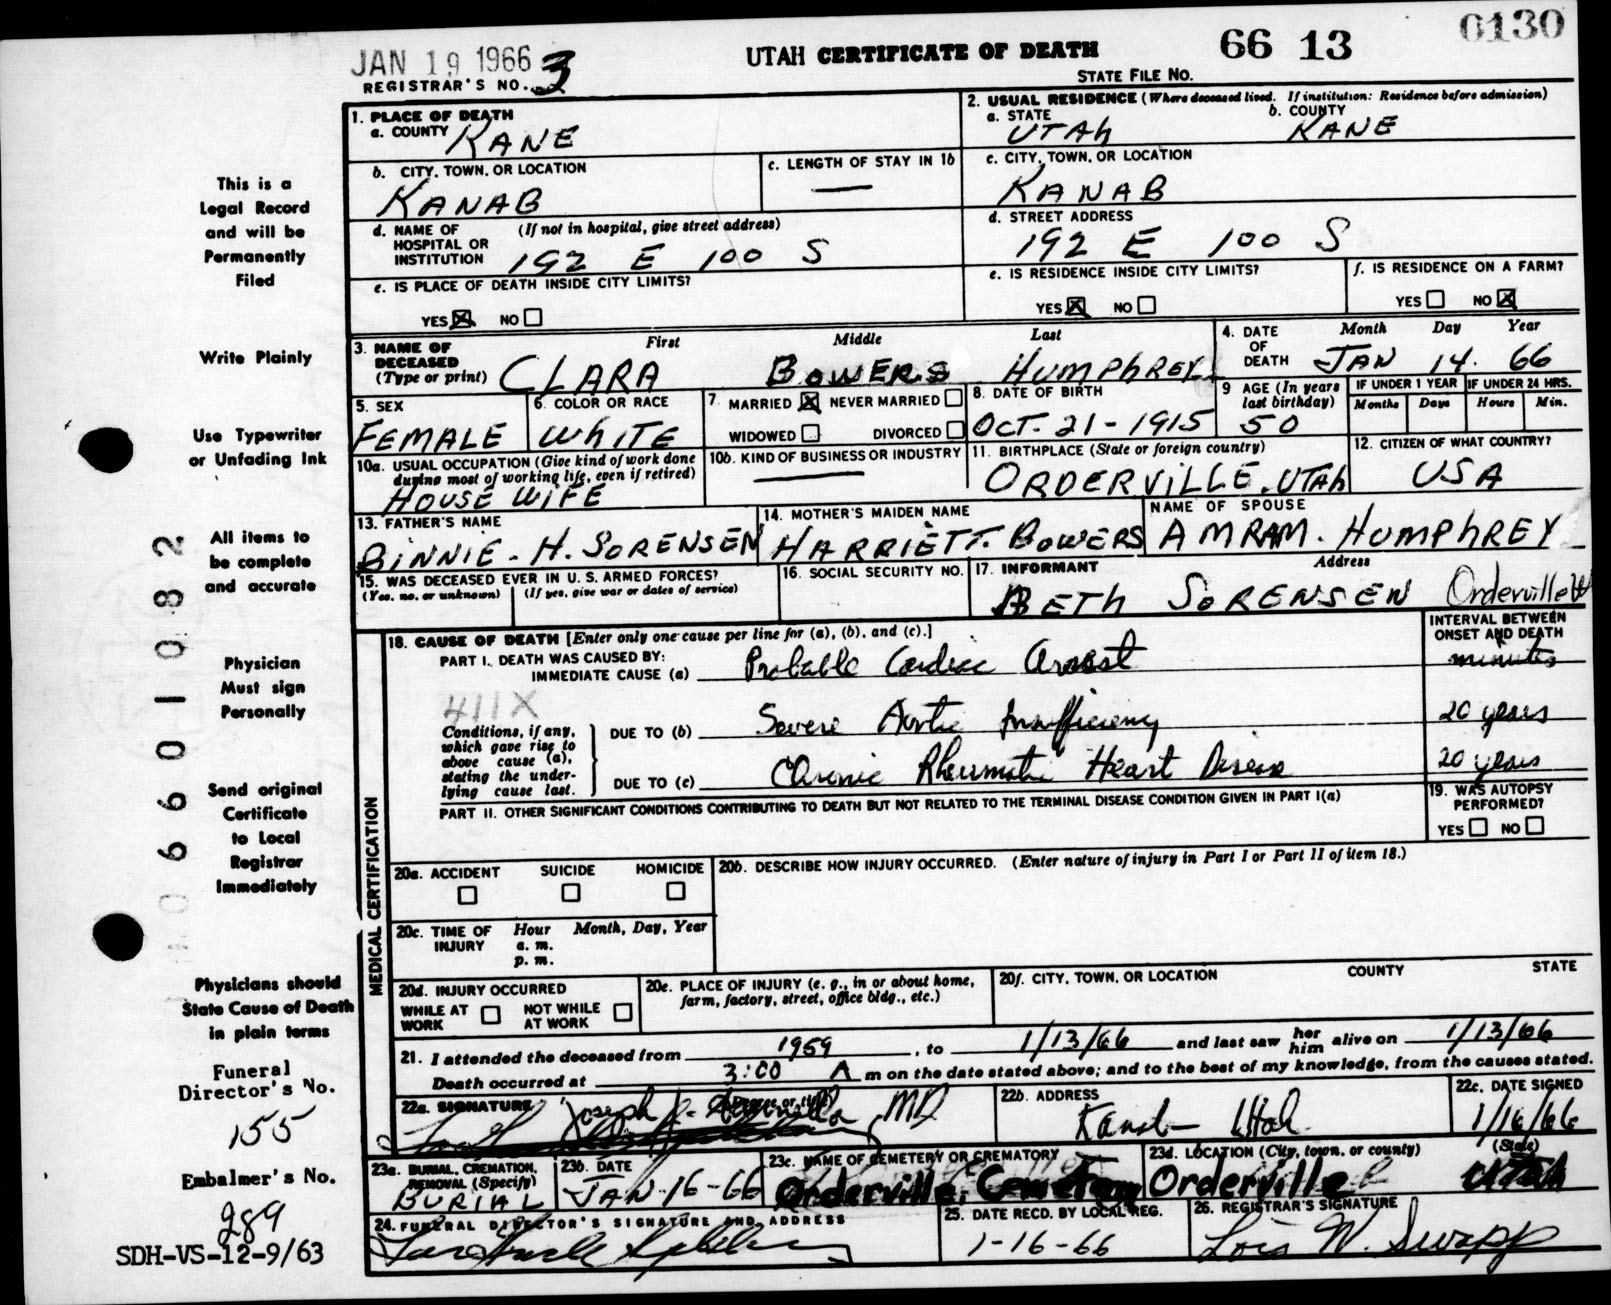 JAN 19 1966
REGISTRAR'S NO. 3
UTAH CERTIFICATE OF DEATH
66 13
0130
STATE FILE NO.
1. PLACE OF DEATH
a. COUNTY KANE
2. USUAL RESIDENCE (Where deceased lived. If institution: Residence before admission)
a. STATE UTAH
b. COUNTY KANE
b. CITY, TOWN, OR LOCATION
KANAB
c. LENGTH OF STAY IN 1b
—
c. CITY, TOWN, OR LOCATION
KANAB
d. NAME OF HOSPITAL OR INSTITUTION (If not in hospital, give street address)
192 E 100 S
d. STREET ADDRESS
192 E 100 S
e. IS PLACE OF DEATH INSIDE CITY LIMITS?
YES ☒ NO ☐
e. IS RESIDENCE INSIDE CITY LIMITS?
YES ☒ NO ☐
f. IS RESIDENCE ON A FARM?
YES ☐ NO ☒
3. NAME OF DECEASED (Type or print)
First Middle Last
CLARA BOWERS HUMPHREY
4. DATE OF DEATH
Month Day Year
JAN 14. 66
5. SEX
FEMALE
6. COLOR OR RACE
WHITE
7 MARRIED ☒ NEVER MARRIED ☐
WIDOWED ☐ DIVORCED ☐
8. DATE OF BIRTH
OCT. 21-1915
9 AGE (In years last birthday)
50
IF UNDER 1 YEAR
Months Days
IF UNDER 24 HRS.
Hours Min.
10a. USUAL OCCUPATION (Give kind of work done during most of working life, even if retired)
HOUSE WIFE
10b. KIND OF BUSINESS OR INDUSTRY
—
11. BIRTHPLACE (State or foreign country)
ORDERVILLE, UTAH
12. CITIZEN OF WHAT COUNTRY?
USA
13. FATHER'S NAME
BINNIE - H. SORENSEN
14. MOTHER'S MAIDEN NAME
HARRIETT. BOWERS
NAME OF SPOUSE
AMRAM. HUMPHREY
15. WAS DECEASED EVER IN U.S. ARMED FORCES?
(Yes, no, or unknown) (If yes, give war or dates of service)
16. SOCIAL SECURITY NO.
17. INFORMANT Address
BETH SORENSEN Orderville Ut
18. CAUSE OF DEATH [Enter only one cause per line for (a), (b), and (c).]
INTERVAL BETWEEN ONSET AND DEATH
PART I. DEATH WAS CAUSED BY:
IMMEDIATE CAUSE (a) Probable Cardiac Arrest minutes
411X
Conditions, if any, which gave rise to above cause (a), stating the underlying cause last.
DUE TO (b) Severe Aortic Insufficiency 20 years
DUE TO (c) Chronic Rheumatic Heart Disease 20 years
PART II. OTHER SIGNIFICANT CONDITIONS CONTRIBUTING TO DEATH BUT NOT RELATED TO THE TERMINAL DISEASE CONDITION GIVEN IN PART I(a)
19. WAS AUTOPSY PERFORMED?
YES ☐ NO ☐
MEDICAL CERTIFICATION
20a. ACCIDENT SUICIDE HOMICIDE
☐ ☐ ☐
20b. DESCRIBE HOW INJURY OCCURRED. (Enter nature of injury in Part I or Part II of item 18.)
20c. TIME OF INJURY Hour Month, Day, Year
a. m.
p. m.
20d. INJURY OCCURRED
WHILE AT WORK ☐ NOT WHILE AT WORK ☐
20e. PLACE OF INJURY (e. g., in or about home, farm, factory, street, office bldg., etc.)
20f. CITY, TOWN, OR LOCATION COUNTY STATE
21. I attended the deceased from 1959, to 1/13/66 and last saw her him alive on 1/13/66
Death occurred at 3:00 A m on the date stated above; and to the best of my knowledge, from the causes stated.
22a. SIGNATURE (Degree or title)
Joseph MD
22b. ADDRESS
Kanab Utah
22c. DATE SIGNED
1/16/66
23a. BURIAL, CREMATION, REMOVAL (Specify)
BURIAL
23b. DATE
JAN-16-66
23c. NAME OF CEMETERY OR CREMATORY
Orderville, Cemetery
23d. LOCATION (City, town, or county) (State)
Orderville Utah
24. FUNERAL DIRECTOR'S SIGNATURE AND ADDRESS
25. DATE RECD. BY LOCAL REG.
1-16-66
26. REGISTRAR'S SIGNATURE
Lois W. Swapp
This is a
Legal Record
and will be
Permanently
Filed
Write Plainly
Use Typewriter
or Unfading Ink
All items to
be complete
and accurate
Physician
Must sign
Personally
Send original
Certificate
to Local
Registrar
Immediately
Physicians should
State Cause of Death
in plain terms
Funeral
Director's No.
155
Embalmer's No.
289
SDH-VS-12-9/63
0 6601082